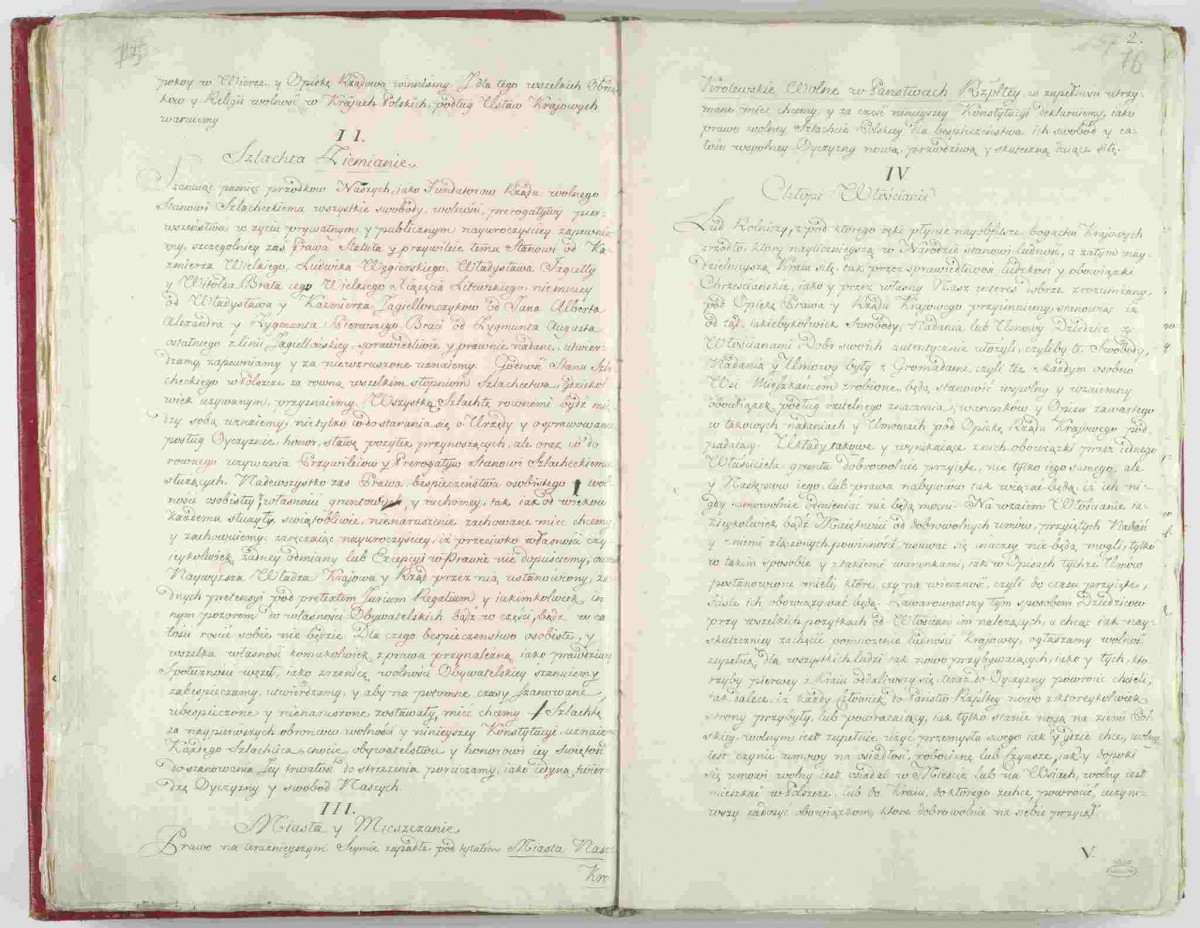 pokoy w Wierze, y Opiekę Rządową winniśmy. I dla tego wszelkich Obrząd
kow y Religii wolność w Krajach Polskich, podług Ustaw Krajowych
waruiemy
II.
Szlachta Ziemianie.
Szanuiąc pamięc przodkow Naszych, iako Fundatorow Rządu wolnego
Stanowi Szlacheckiemu wszystkie swobody, wolności, prerogatywy pier-
wszeństwa w życiu prywatnym y publicznym nayuroczyściey zapewnia
my, szczegolniey zaś Prawa, Statuta y przywileie temu Stanowi od Ka-
zimierza Wielkiego, Ludwika Węgierskiego, Władysława Jagiełły
y Witolda Brata iego Wielkiego Xiążęcia Litewskiego, niemniey
od Władysława y Kazimierza Jagiellończykow od Jana Alberta
Alexandra y Zygmunta Pierwszego Braci od Zygmunta Augusta
ostatniego z linii Jagiellońskiey, sprawiedliwie y prawnie nadane, utwier-
dzamy, zapewniamy y za niewzruszone uznaiemy. Godność Stanu Szla
checkiego w Polszcze za rowną wszelkim stopniom Szlachectwa, gdziekol
wiek używanym, przyznaiemy. Wszystką Szlachtę rownemi bydź mię
dzy sobą uznaiemy, nietylko co do starania się o Urzędy y o sprawowanie
posług Oyczyznie, honor, sławę, pożytek przynoszących, ale oraz co do
rownego używania Przywileiow y Prerogatyw Stanowi Szlacheckiemu
służących. Nadewszystko zaś Prawa bezpieczeństwa osobistego, wol
ności osobistey, własności gruntowey y ruchomey, tak, iak od wiekow
każdemu służyły, świątobliwie, nienaruszenie zachowane mieć chcemy
y zachowuiemy: zaręczaiąc nayuroczyściey, iż przeciwko własności czy
ieykolwiek żadney odmiany lub Excepcyi w Prawie nie dopuściemy, owszem
Naywyższa Władza Krajowa y Rząd przez nią ustanowiony, ża
dnych pretensyi pod pretextem Jurium Regalium y iakimkolwiek in
nym pozorem do własności Obywatelskich bądź w części, bądź w ca
łości rościć sobie nie będzie. Dla czego bezpieczeństwo osobiste, y
wszelką własność komukolwiek z prawa przynależną, iako prawdziwy
Społeczności węzeł, iako zrzenicę wolności Obywatelskiey szanuiemy
zabespieczamy, utwierdzamy, y aby na potomne czasy szanowane,
ubespieczone y nienaruszone zostawały, mieć chcemy. Szlachtę
za naypierwszych obroncow wolności y ninieyszey Konstytucyi uznaiemy
Każdego Szlachcica cnocie, obywatelstwu y honorowi iey świętość
do szanowania Jey trwałość do strzeżenia poruczamy, iako iedyną twier
dzę Oyczyzny y swobod Naszych.
III.
Miasta y Mieszczanie
Prawo na teraznieyszym Seymie zapadłe pod tytułem Miasta Nasze
Kro
2.
76
Krolewskie Wolne w Państwach Rzpltey w zupełności utrzy-
mane mieć chcemy, y za część ninieyszey Konstytucyi deklaruiemy, iako
prawo wolney Szlachcie Polskiey dla bespieczeństwa ich swobod y ca-
łości wspolney Oyczyzny nową, prawdziwą y skuteczną daiące siłę.
IV
Chłopi Włościanie
Lud Rolniczy, z pod ktorego ręki płynie nayobfitsze bogactw Krajowych
zrzodło, ktory nayliczniejszą w Narodzie stanowi ludność, a zatym nay-
dzielnieyszą Kraiu siłę, tak przez sprawiedliwość ludzkość y obowiązki
Chrześciańskie, iako y przez własny Nasz interes dobrze zrozumiany,
pod Opiekę Prawa y Rządu Krajowego przyimuiemy, stanowiąc iż
od tąd, iakiebykolwiek Swobody, Nadania lub Umowy Dziedzice z
Włościanami Dobr swoich autentycznie ułożyli, czyliby te Swobody,
Nadania y Umowy były z Gromadami, czyli też z każdym osobno
Wsi Mieszkańcem zrobione, będą stanowić wspolny y wzaiemny
obowiązek podług rzetelnego znaczenia, warunkow y Opisu zawartego
w takowych nadaniach y Umowach pod Opiekę Rządu Krajowego pod-
padaiący. Układy takowe y wynikaiące z nich obowiązki przez iednego
Właściciela gruntu dobrowolnie przyięte, nie tylko iego samego, ale
y Następcow iego, lub prawa nabywcow tak wiązać będą, iż ich ni-
gdy samowolnie odmieniać nie będą mocni. Na wzaiem Włościanie ia-
kieykolwiek bądź Maiętności od dobrowolnych umow, przyiętych Nadań
y z niemi złączonych powinności usuwać się inaczey nie będą mogli, tylko
w takim sposobie y z takiemi warunkami, iak w Opisach tychże Umow
postanowione mieli, ktore, czy na wieczność, czyli do czasu przyięte,
ściśle ich obowiązywać będą. Zawarowawszy tym sposobem Dziedzicow
przy wszelkich pożytkach od Włościan im należących, a chcąc iak nay-
skuteczniey zachęcić pomnożenie ludności Krajowey, ogłaszamy wolność
zupełną dla wszystkich ludzi tak nowo przybywaiących, iako y tych, kto
rzyby pierwey z Kraiu oddaliwszy się, teraz do Oyczyzny powrocić chcieli,
tak dalece, iż każdy Człowiek do Państw Rzpltey nowo z ktoreykolwiek
strony przybyły, lub powracaiący, iak tylko stanie nogą na ziemi Pol-
skiey wolnym iest zupełnie użyć przemysłu swego iak y gdzie chce, wolny
iest czynić umowy na osiadłość, robociznę lub Czynsze, iak y dopoki
się umowi wolny iest osiadać w Mieście lub na Wsiach, wolny iest
mieszkać w Polszcze, lub do Kraiu, do ktorego zechce, powrocić, uczyni-
wszy zadosyć obowiązkom, ktore dobrowolnie na siebie przyiął.
V.